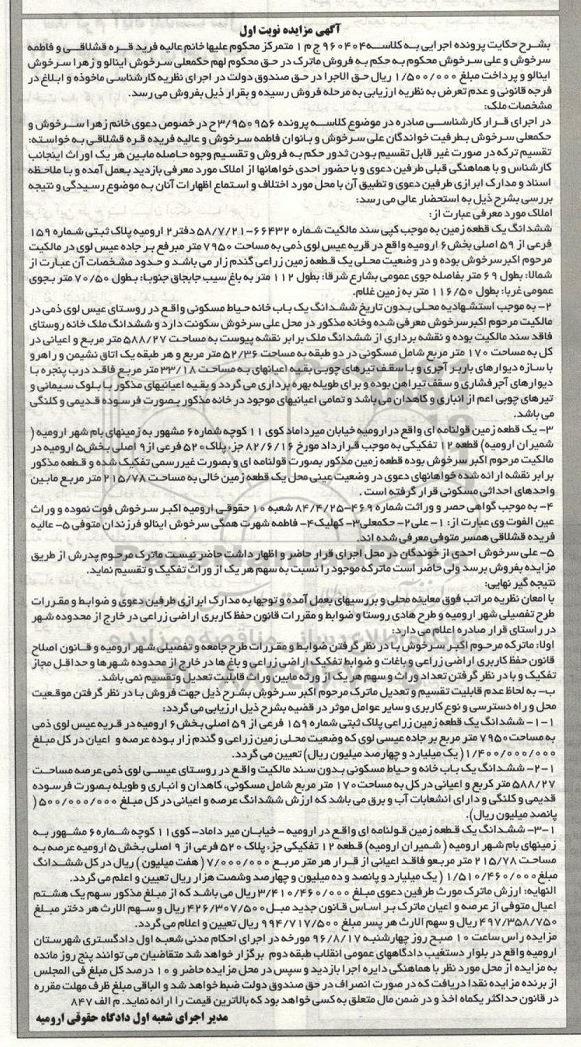 آگهی مزایده نوبت اول
بشرح حکایت پرونده اجرایی به کلاسه ۹۶۰۴۰۴ ج م ۱ متمرکز محکوم علیها خانم عالیه فرید قره قشلاقی و فاطمه
سرخوش و علی سرخوش محکوم به حکم به فروش ماترک در حق محکوم لهم حکمعلی سرخوش اینالو و زهرا سرخوش
اینالو و پرداخت مبلغ ۱/۵۰۰/۰۰۰ ریال حق الاجرا در حق صندوق دولت در اجرای نظریه کارشناسی ماخوذه و ابلاغ در
فرجه قانونی و عدم تعرض به نظریه ارزیابی به مرحله فروش رسیده و بقرار ذیل بفروش می رسد.
مشخصات ملک:
در اجرای قرار کارشناسی صادره در موضوع کلاسه پرونده ۳/۹۵۰۹۵۶ح در خصوص دعوی خانم زهرا سرخوش و
حکمعلی سرخوش بطرفیت خواندگان علی سرخوش و بانوان فاطمه سرخوش و عالیه فریده قره قشلاقی به خواسته:
تقسیم ترکه در صورت غیر قابل تقسیم بودن ثدور حکم به فروش و تقسیم وجوه حاصله مابین هر یک اوراث اینجانب
کارشناس و با هماهنگی قبلی طرفین دعوی و با حضور احدی خواهانها از املاک مورد معرفی بازدید بعمل آمده و با ملاحظه
اسناد و مدارک ابرازی طرفین دعوی و تطبیق آن با محل مورد اختلاف و استماع اظهارات آنان به موضوع رسیدگی و نتیجه
بررسی بشرح ذیل به استحضار عالی می رسد:
املاک مورد معرفی عبارت از:
ششدانگ یک قطعه زمین به موجب کپی سند مالکیت شماره ۶۶۴۳۲-۵۸/۷/۲۱ دفتر ۲ ارومیه پلاک ثبتی شماره ۱۵۹
فرعی از ۵۹ اصلی بخش ۶ ارومیه واقع در قریه عیس لوی ذمی به مساحت ۷۹۵۰ متر مبرفع بر جاده عیس لوی در مالکیت
مرحوم اکبر سرخوش بوده و در وضعیت محلی یک قطعه زمین زراعی گندم زار می باشد و حدود مشخصات آن عبارت از
شمالا: بطول ۶۹ متر بفاصله جوی عمومی بشارع شرقا: بطول ۱۱۲ متر به باغ سیب جابجاق جنوبا: بطول ۷۰/۵۰ متر بجوی
عمومی غربا: بطول ۱۱۶/۵۰ متر به زمین غلام.
۲- به موجب استشهادیه محلی بدون تاریخ ششدانگ یک باب خانه حیاط مسکونی واقع در روستای عیس لوی ذمی در
مالکیت مرحوم اکبر سرخوش معرفی شده وخانه مذکور در محل علی سرخوش سکونت دارد و ششدانگ ملک خانه روستای
فاقد سند مالکیت بوده و نقشه برداری از ششدانگ ملک برابر نقشه پیوست به مساحت ۵۸۸/۲۷ متر مربع و اعیانی در
کل به مساحت ۱۷۰ متر مربع شامل مسکونی در دو طبقه به مساحت ۵۲/۳۶ متر مربع و هر طبقه یک اتاق نشیمن و راهرو
با سازه دیوارهای باربر آجری و با سقف تیرهای چوبی بقیه اعیانهای به مساحت ۳۳/۱۸ متر مربع فاقد درب پنجره با
دیوارهای آجر فشاری و سقف تیر اهن بوده و برای طویله بهره برداری می گردد و بقیه اعیانیهای مذکور با بلوک سیمانی و
تیرهای چوبی اعم از انباری و کاهدان می باشد و تمامی اعیانیهای موجود در خانه مذکور بصورت فرسوده قدیمی و کلنگی
می باشد.
۳- یک قطعه زمین قولنامه ای واقع در ارومیه خیابان میرداماد کوی ۱۱ کوچه شماره ۶ مشهور به زمینهای بام شهر ارومیه (
شمیران ارومیه) قطعه ۱۲ تفکیکی به موجب قرارداد مورخ ۸۲/۶/۱۶ جز، پلاک ۵۲۰ فرعی از ۹ اصلی بخش ۵ ارومیه در
مالکیت مرحوم اکبر سرخوش بوده قطعه زمین مذکور بصورت قولنامه ای و بصورت غیررسمی تفکیک شده و قطعه مذکور
برابر نقشه ارائه شده خواهانهای دعوی در وضعیت عینی محل یک قطعه زمین خالی به مساحت ۲۱۵/۷۸ متر مربع مابین
واحدهای احداثی مسکونی قرار گرفته است.
۴- به موجب گواهی حصر و وراثت شماره ۴۶۹-۸۴/۴/۲۵ شعبه ۱۰ حقوقی ارومیه اکبر سرخوش فوت نموده و وراث
عین الفوت وی عبارت از: ۱- علی ۲- حکمعلی ۳- کهلیک ۴- فاطمه شهرت همگی سرخوش اینالو فرزندان متوفی ۵- عالیه
فریده قشلاقی همسر متوفی معرفی شده اند.
۵- علی سرخوش احدی از خوندگان در محل اجرای قرار حاضر و اظهار داشت حاضر نیست ماترک مرحوم پدرش از طریق
مزایده بفروش برسد ولی حاضر است ماترکه موجود را نسبت به سهم هر یک از وراث تفکیک و تقسیم نماید.
نتیجه گیر نهایی:
با امعان نظریه مراتب فوق معاینه محلی و بررسیهای بعمل آمده و توجها به مدارک ابرازی طرفین دعوی و ضوابط و مقررات
طرح تفصیلی شهر ارومیه و طرح هادی روستا و ضوابط و مقررات قانون حفظ کاربری اراضی زراعی در خارج از محدوده شهر
در راستای قرار صادره اعلام می دارد:
اولا: ماترکه مرحوم اکبر سرخوش با در نظر گرفتن ضوابط و مقررات طرح جامعه و تفصیلی شهر ارومیه و قانون اصلاح
قانون حفظ کاربری اراضی زراعی و باغات و ضوابط تفکیک اراضی زراعی و باغ ها در خارج از محدوده شهرها و حداقل مجاز
تفکیک و با در نظر گرفتن تعداد وراث و سهم هر یک از ورثه مابین وراث قابلیت تعدیل وتقسیم نمی باشد.
ب- به لحاظ عدم قابلیت تقسیم و تعدیل ماترک مرحوم اکبر سرخوش بشرح ذیل جهت فروش با در نظر گرفتن موقعیت
محل و راه دسترسی و نوع کاربری و سایر عوامل موثر در قضیه بشرح ذیل ارزیابی می گردد:
۱-۱- ششدانگ یک قطعه زمین زراعی پلاک ثبتی شماره ۱۵۹ فرعی از ۵۹ اصلی بخش ۶ ارومیه در قریه عیس لوی ذمی
به مساحت ۷۹۵۰ متر مربع بر جاده عیسی لوی که وضعیت محلی زمین زراعی و گندم زار بوده عرصه و اعیان در کل مبلغ
۱/۴۰۰/۰۰۰/۰۰۰ ( یک میلیارد و چهارصد میلیون ریال) تعیین می گردد.
۱-۲- ششدانگ یک باب خانه و حیاط مسکونی بدون سند مالکیت واقع در روستای عیسی لوی ذمی عرصه مساحت
۵۸۸/۲۷ متر کربع و اعیانی در کل به مساحت ۱۷۰ متر مربع شامل مسکونی، کاهدان و انباری و طویله بصورت فرسوده
قدیمی و کلنگی و دارای انشعابات آب و برق می باشد که ارزش ششدانگ عرصه و اعیانی در کل مبلغ ۵۰۰/۰۰۰/۰۰۰ (
پانصد میلیون ریال).
۱-۳- ششدانگ یک قطعه زمین قولنامه ای واقع در ارومیه - خیابان میر داماد- کوی ۱۱ کوچه شماره ۶ مشهور به
زمینهای بام شهر ارومیه ( شمیران ارومیه) قطعه ۱۲ تفکیکی جزء پلاک ۵۲۰ فرعی از ۹ اصلی بخش ۵ ارومیه عرصه به
مساحت ۲۱۵/۷۸ متر مربعو فاقد اعیانی از قرار هر متر مربع ۷/۰۰۰/۰۰۰ ( هفت میلیون ) ریال در کل ششدانگ
مبلغ ۱/۵۱۰/۴۶۰/۰۰۰ ( یک میلیارد و پانصد و ده میلیون و چهارصد وشصت هزار ریال تعیین و اعلام می گردد.
النهایه: ارزش ماترک مورث طرفین دعوی مبلغ ۳/۴۱۰/۴۶۰/۰۰۰ ریال می باشد که از مبلغ مذکور سهم یک هشتم
اعیال متوفی از عرصه و اعیان ماترک بر اساس قانون جدید مبل ۴۲۶/۳۰۷/۵۰۰ ریال و سهم الارث هر دختر مبلغ
۴۹۷/۳۵۸/۷۵۰ ریال و سهم الارث هر پسر مبلغ ۹۹۴/۷۱۷/۵۰۰ ریال تعیین و اعلام می گردد.
مزایده راس ساعت ۱۰ صبح روز چهارشنبه ۹۶/۸/۱۷ مورخه در اجرای احکام مدنی شعبه اول دادگستری شهرستان
ارومیه واقع در بلوار دستغیب دادگاههای عمومی انقلاب طبقه دوم برگزار خواهد شد متقاضیان می توانند پنج روز مانده
به مزایده از محل مورد نظر با هماهنگی دایره اجرا بازدید و سپس در محل مزایده حاضر و ۱۰ درصد کل مبلغ فی المجلس
از برنده مزایده نقدا دریافت که در صورت انصراف در حق صندوق دولت ضبط خواهد شد و الباقی مبلغ ظرف مهلت مقرره
در قانون حداکثر یکماه اخذ و در ضمن مال متعلق به کسی خواهد بود که بالاترین قیمت را ارائه نماید. م الف ۸۴۷
مدیر اجرای شعبه اول دادگاه حقوقی ارومیه